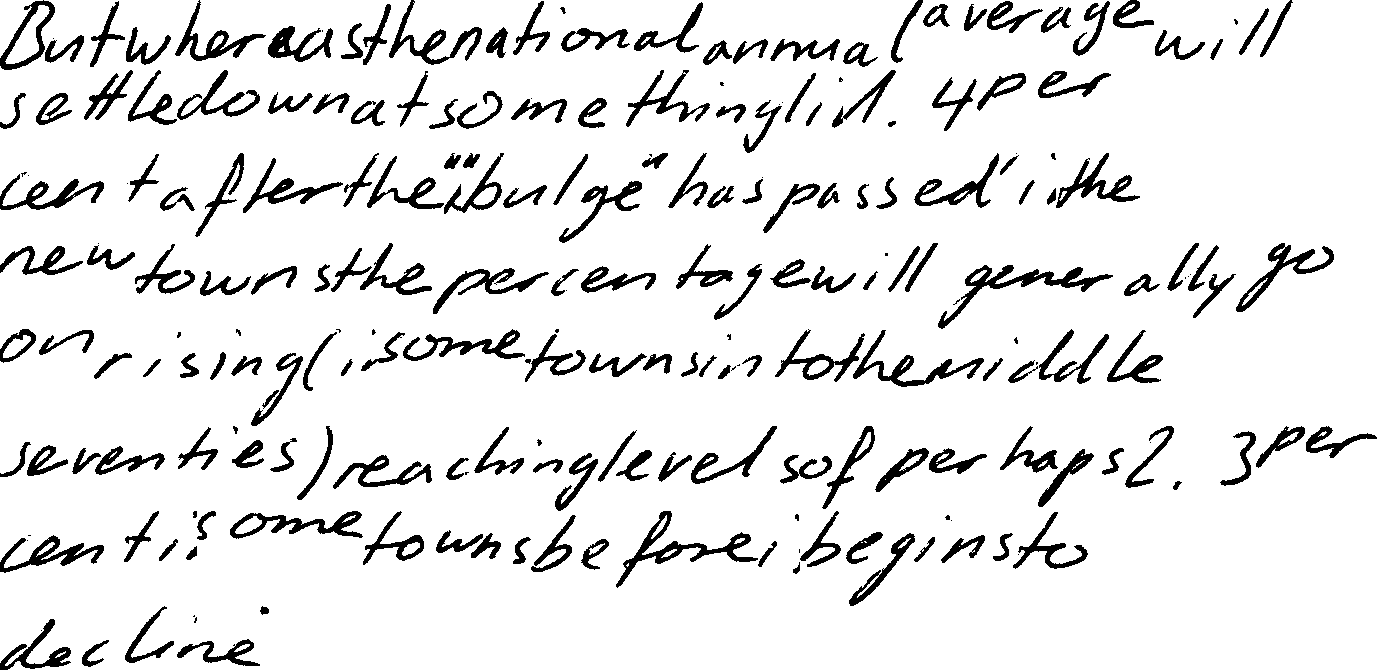 But whereas the national annual average will
settle down at something lid. 4 per
cent after the "" bulge" has passed' i. the
new towns the percentage will generally go
on rising (i. some towns into the middle
seventies) reaching levels of perhaps 2. 3 per
cent i. some towns before i. begins to
decline.